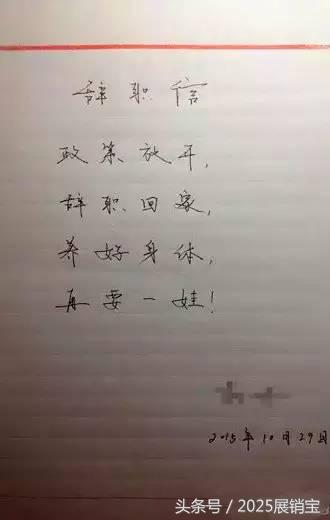 辞职信
政策放开,
辞职回家,
养好身体,
再要一娃!
2015年10月29日
头条号 / 2025展销宝